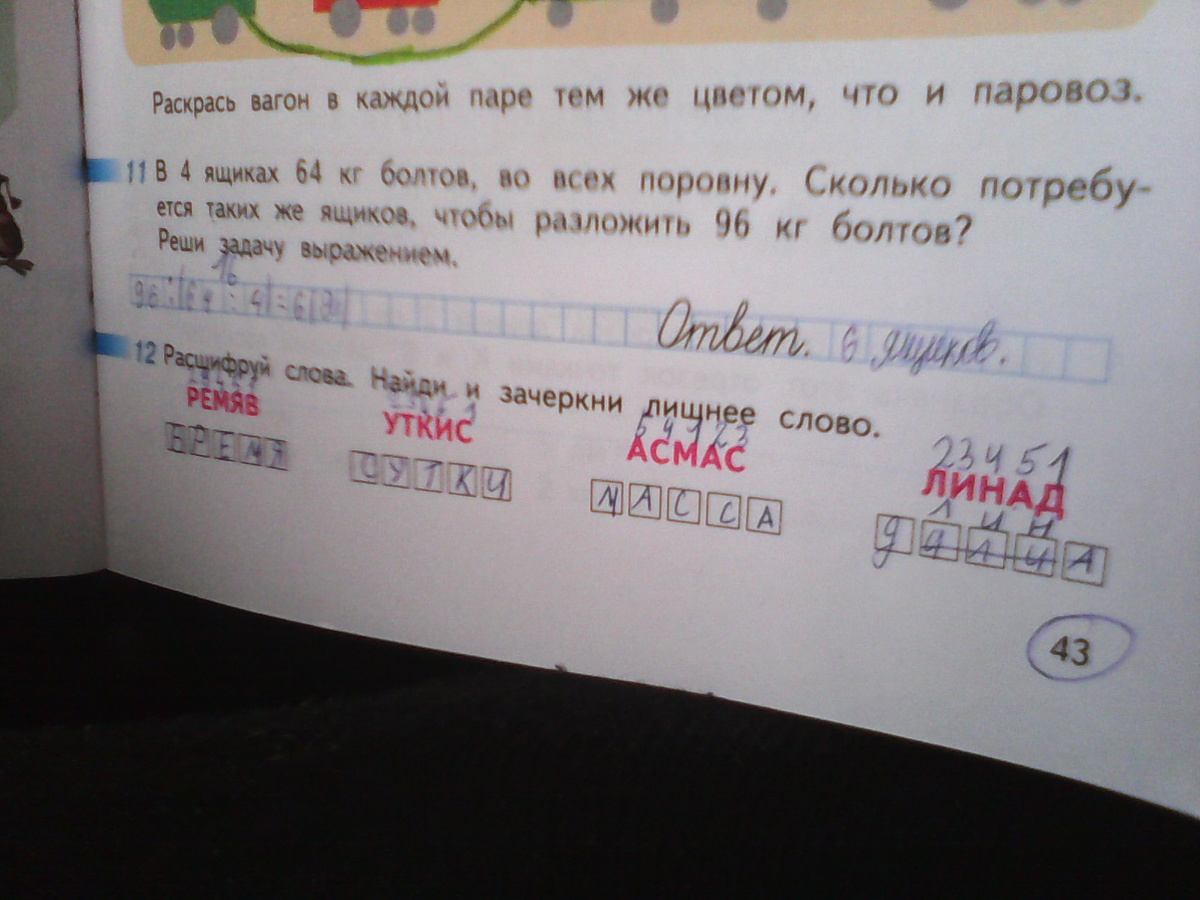 Раскрась вагон в каждой паре тем же цветом, что и паровоз.
11 В 4 ящиках 64 кг болтов, во всех поровну. Сколько потребу-
ется таких же ящиков, чтобы разложить 96 кг болтов?
Реши задачу выражением.
16
96:(64:4)=6(я)
Ответ. 6 ящиков.
12 Расшифруй слова. Найди и зачеркни лишнее слово.
5 4 1 2 3
2 3 4 5 1
РЕМЯВ УТКИС АСМАС ЛИНАД
л и н
ВРЕМЯ СУТКИ МАССА
43